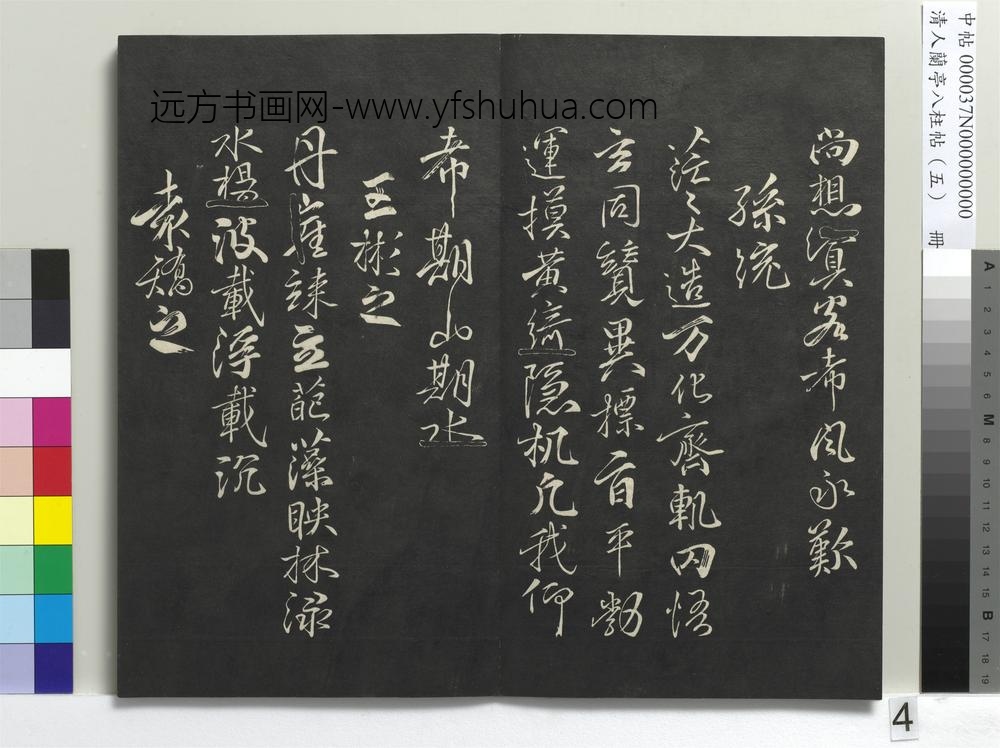 尚想冥客希風永歎
孫統
茫々大造万化齊軌罔悟
玄同競異摽旨平勃
運摸黄綺隱机凡我仰
希期山期水
王彬之
丹崖竦立葩藻映林渌
水揚波載浮載沉
袁嶠之
远方书画网-www.yfshuhua.com
中帖 000037N000000000
清人蘭亭八柱帖（五） 冊
4
A
1
2
3
4
5
6
M
8
9
10
11
12
13
14
15
B
17
18
19